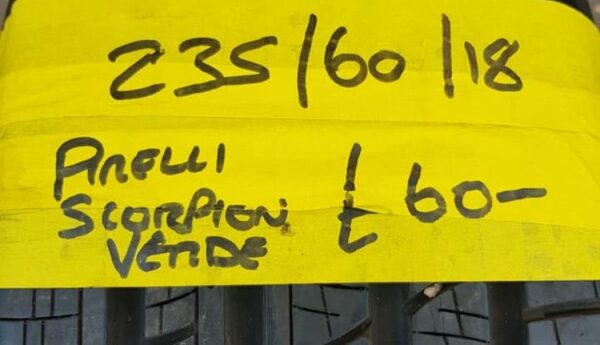 235/60/18
PIRELLI
SCORPION £60-
VERDE